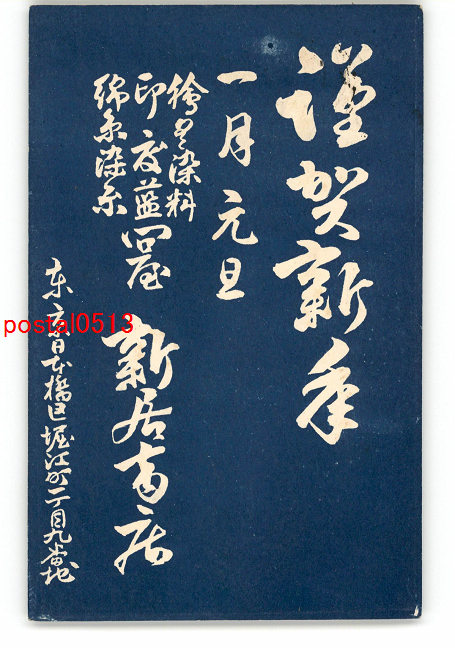 謹賀新年
一月元旦
繪具染料
印度藍問屋
綿糸染糸
新居商店
東京日本橋区堀江町二丁目九番地
postal0513